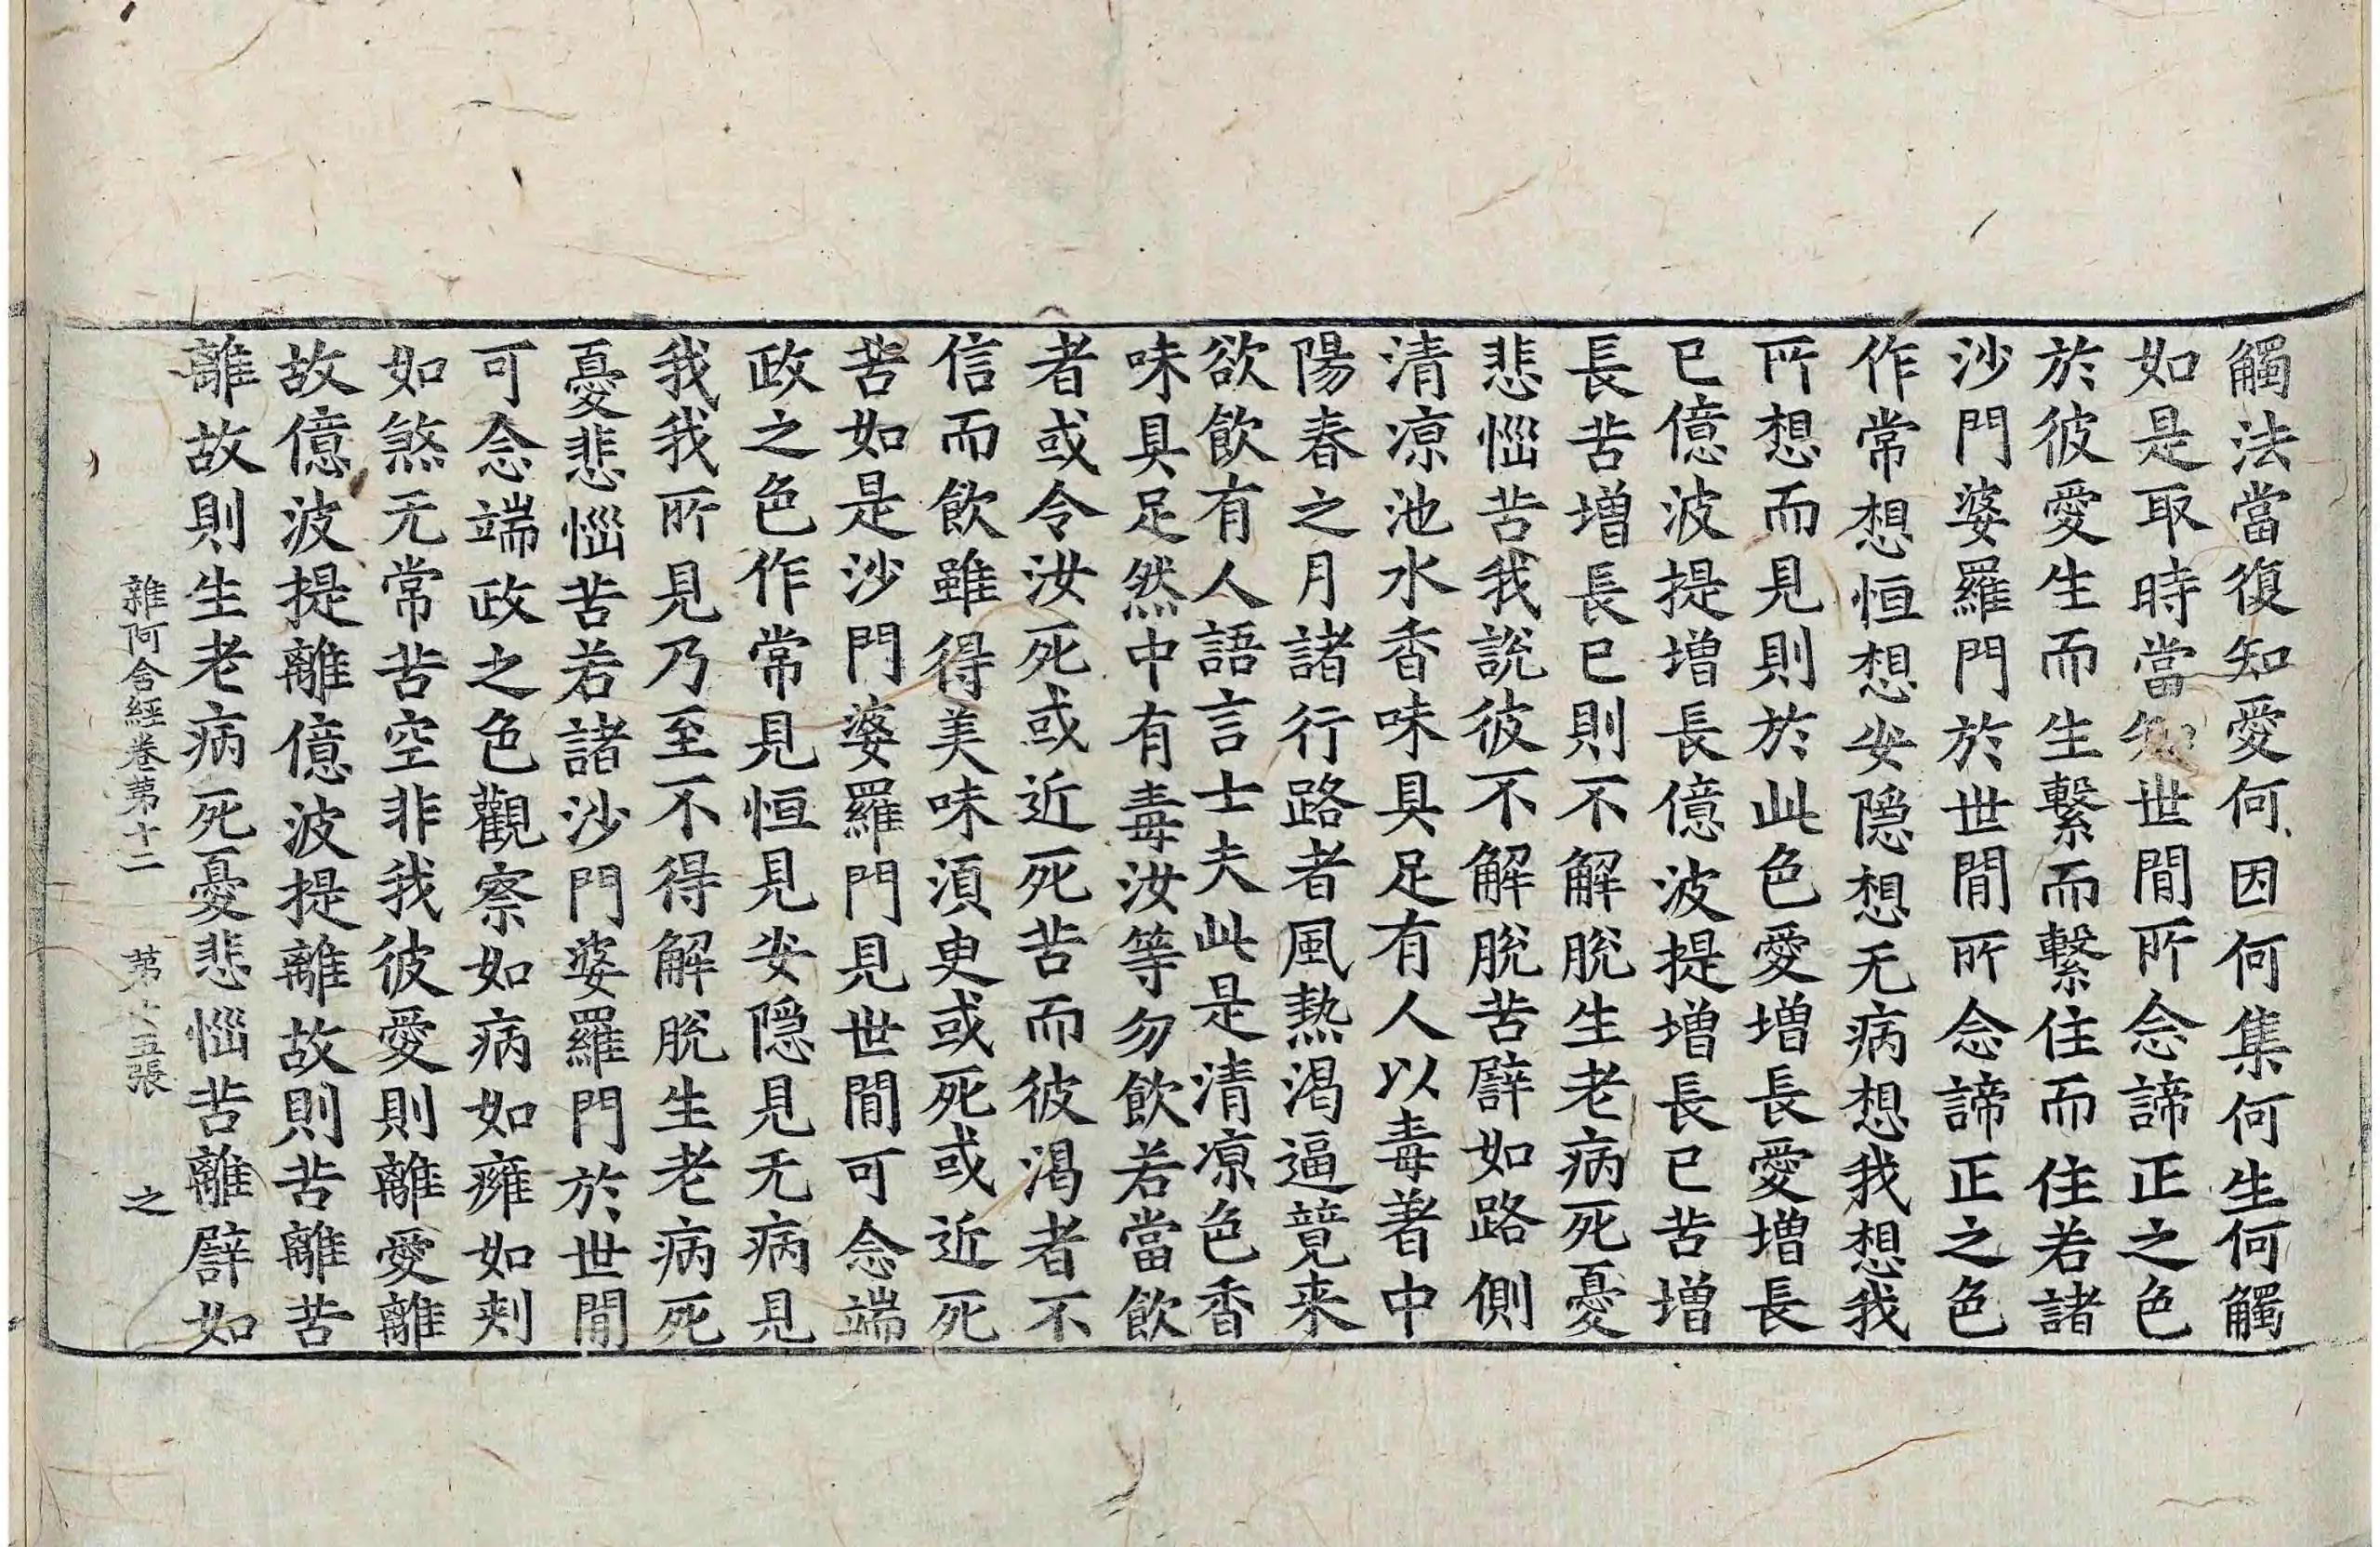 觸法當復知愛何因何集何生何觸
如是取時當知世間所念諦正之色
於彼愛生而生繫而繫住而住若諸
沙門婆羅門於世間所念諦正之色
作常想恒想安隱想无病想我想我
所想而見則於此色愛增長愛增長
已億波提增長億波提增長已苦增
長苦增長已則不解脫生老病死憂
悲惱苦我說彼不解脫苦譬如路側
清涼池水香味具足有人以毒著中
陽春之月諸行路者風熱渴逼競来
欲飲有人語言士夫此是清涼色香
味具足然中有毒汝等勿飲若當飲
者或令汝死或近死苦而彼渴者不
信而飲雖得美味須臾或死或近死
苦如是沙門婆羅門見世間可念端
政之色作常見恒見安隱見无病見
我我所見乃至不得解脫生老病死
憂悲惱苦若諸沙門婆羅門於世間
可念端政之色觀察如病如癰如刺
如煞无常苦空非我彼愛則離愛離
故億波提離億波提離故則苦離苦
離故則生老病死憂悲惱苦離譬如
雜阿含經卷第十二 第十五張 之